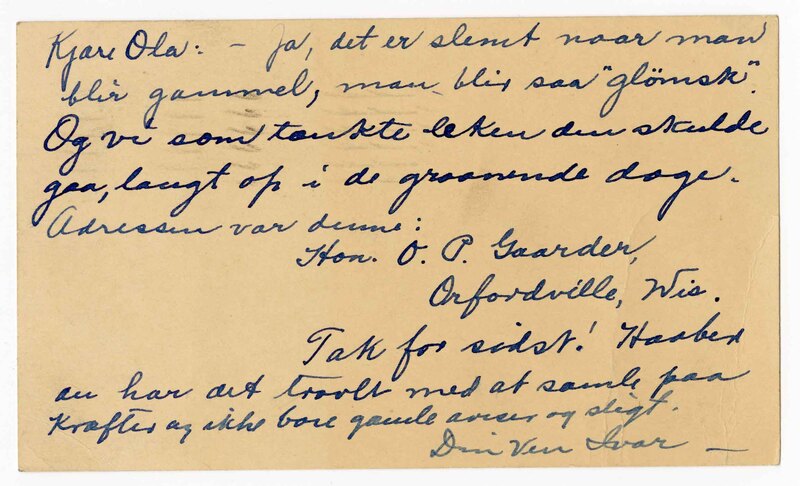 Kjære Ola: - Ja, det er slemt naar man
blir gammel, man blir saa "glömsk".
Og vi som tænkte leken den skulde
gaa, langt op i de graanende dage.
Adressen var denne:
Hon. O. P. Gaarder,
Orfordville, Wis.
Tak for sidst! Haaber
du har det travlt med at samle paa
Kræfter og ikke bare gamle aviser og sligt.
Din Ven Ivar -